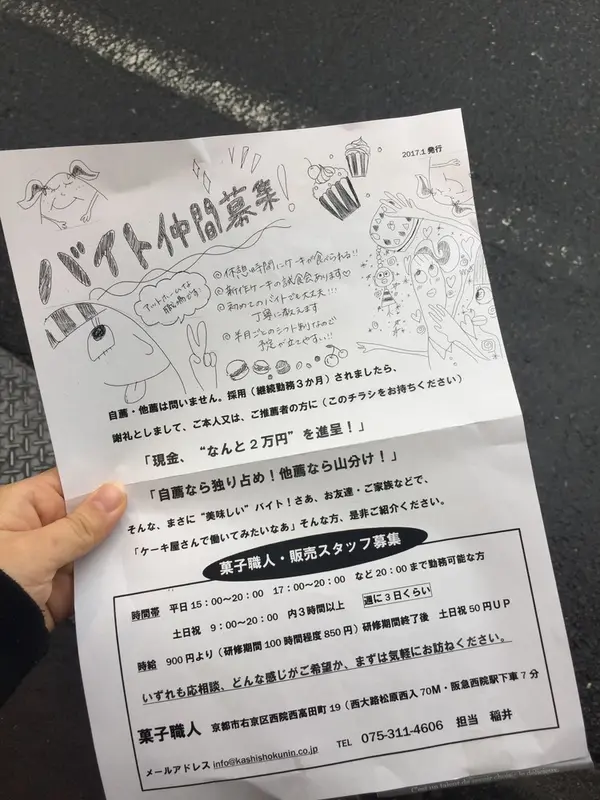 2017.1 発行
バイト仲間募集!
アットホームな
職場です!
◎休憩時間にケーキが食べられる!!
◎新作ケーキの試食会あります♡
◎初めてのバイトでも大丈夫!!!
丁寧に教えます
◎半月ごとのシフト制なので
予定が立てやすい!!
自薦・他薦は問いません。採用（継続勤務３か月）されましたら、
謝礼としまして、ご本人又は、ご推薦者の方に（このチラシをお持ちください）
「現金、“なんと２万円”を進呈！」
「自薦なら独り占め！他薦なら山分け！」
そんな、まさに“美味しい”バイト！さあ、お友達・ご家族などで、
「ケーキ屋さんで働いてみたいなあ」そんな方、是非ご紹介ください。
菓子職人・販売スタッフ募集
時間帯 平日15：00～20：00 17：00～20：00 など20：00まで勤務可能な方
土日祝 9：00～20：00 内３時間以上 週に３日くらい
時給 900円より（研修期間100時間程度850円）研修期間終了後 土日祝50円ＵＰ
いずれも応相談、どんな感じがご希望か、まずは気軽にお訪ねください。
菓子職人 京都市右京区西院西高田町19（西大路松原西入70M・阪急西院駅下車７分
メールアドレス info@kashishokunin.co.jp TEL 075-311-4606 担当 稲井